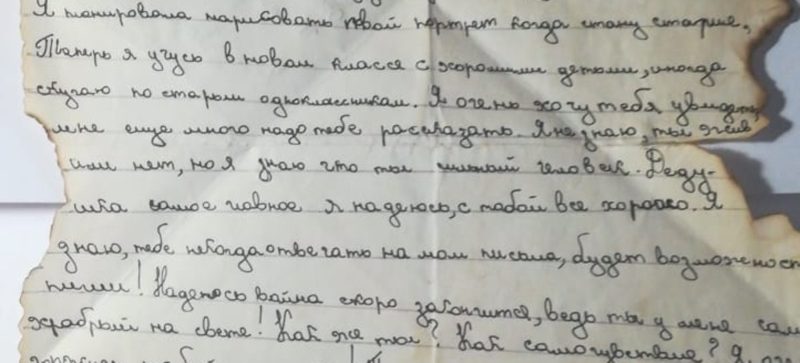 Я планировала нарисовать твой портрет когда стану старше,
Тпаперь я учусь в новом классе с хорошими детьми, иногда
скучаю по старым одноклассникам. Я очень хочу тебя увидеть,
мне еще много надо тебе рассказать. Я не знаю, ты жив
или нет, но я знаю что ты сильный человек. Деду-
шка самое главное я надеюсь, с табой все хорошо. Я
знаю, тебе некогда отвечать на мои письма, будет возможност
пиши! Надеюсь вайна скоро закончится, ведь ты у меня сам
храбрый на свете! Как же ты? Как самочувствие? Я